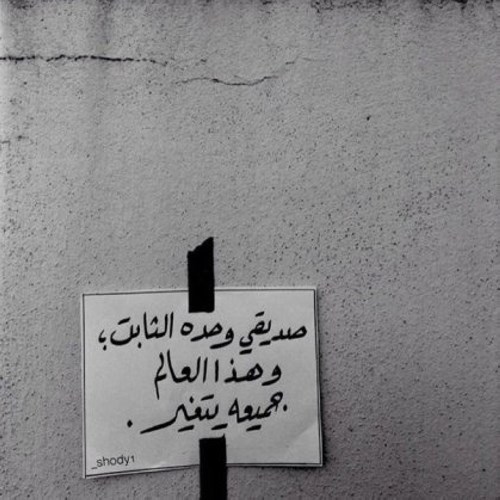 صديقي وحده الثابت ؛
وهذا العالم
جميعه يتغير .
_shody1